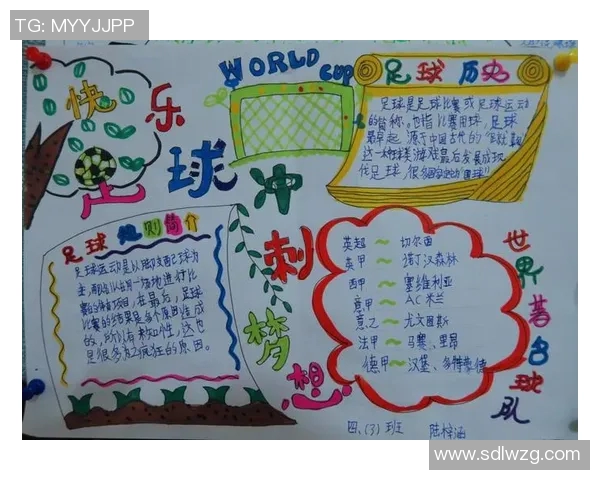 TG: MYYJJPP
WORLD
CUP
快乐
足球冲刺梦想
足球 历史
足球是足球比赛或足球运动
的简称。也指比赛用球，足球
最早起源于中国古代的
这一种球类游戏最后发展成现
代足球，很多
足球 规则简介
足球运动是以脚支配球为
主，
赛的体育项目，在最后，足球
比赛的结果是多个原因造成
的，所以有未知性，这也
是很多友疯狂的原因。
英超～切尔西
英甲～诺丁汉森林
西甲～塞维利亚
意甲～AC米兰
意乙～尤文图斯
法甲～马赛、里昂
德甲～汉堡、多特蒙德
世界著名球队
四、(3) 班 陆梓涵
www.sdlwzg.com